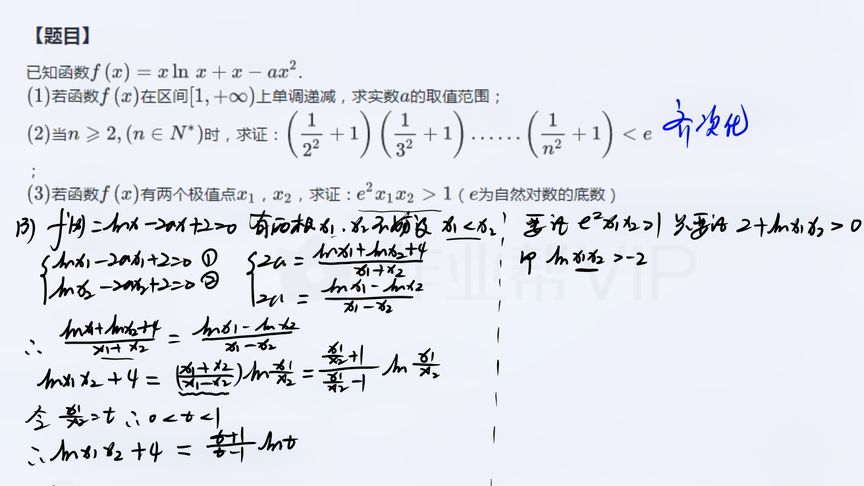 【题目】
已知函数f(x)=x ln x+x−ax².
(1)若函数f(x)在区间[1,+∞)上单调递减，求实数a的取值范围；
(2)当n⩾2,(n∈N*)时，求证：(1/2²+1)(1/3²+1)……(1/n²+1)<e 齐次化
；
(3)若函数f(x)有两个极值点x₁，x₂，求证：e²x₁x₂>1（e为自然对数的底数）
(3) f'(x)=lnx−2ax+2=0 有两根x₁、x₂ 不妨设 x₁<x₂
{lnx₁−2ax₁+2=0 ①
lnx₂−2ax₂+2=0 ②
{2a=(lnx₁+lnx₂+4)/(x₁+x₂)
2a=(lnx₁−lnx₂)/(x₁−x₂)
∴ (lnx₁+lnx₂+4)/(x₁+x₂)=(lnx₁−lnx₂)/(x₁−x₂)
lnx₁x₂+4=((x₁+x₂)/(x₁−x₂))ln(x₁/x₂)=((x₁/x₂+1)/(x₁/x₂−1))ln(x₁/x₂)
令 x₁/x₂=t ∴0<t<1
∴lnx₁x₂+4=((t+1)/(t−1))lnt
要证 e²x₁x₂>1 只要证 2+lnx₁x₂>0
即 lnx₁x₂>−2
作业帮VIP